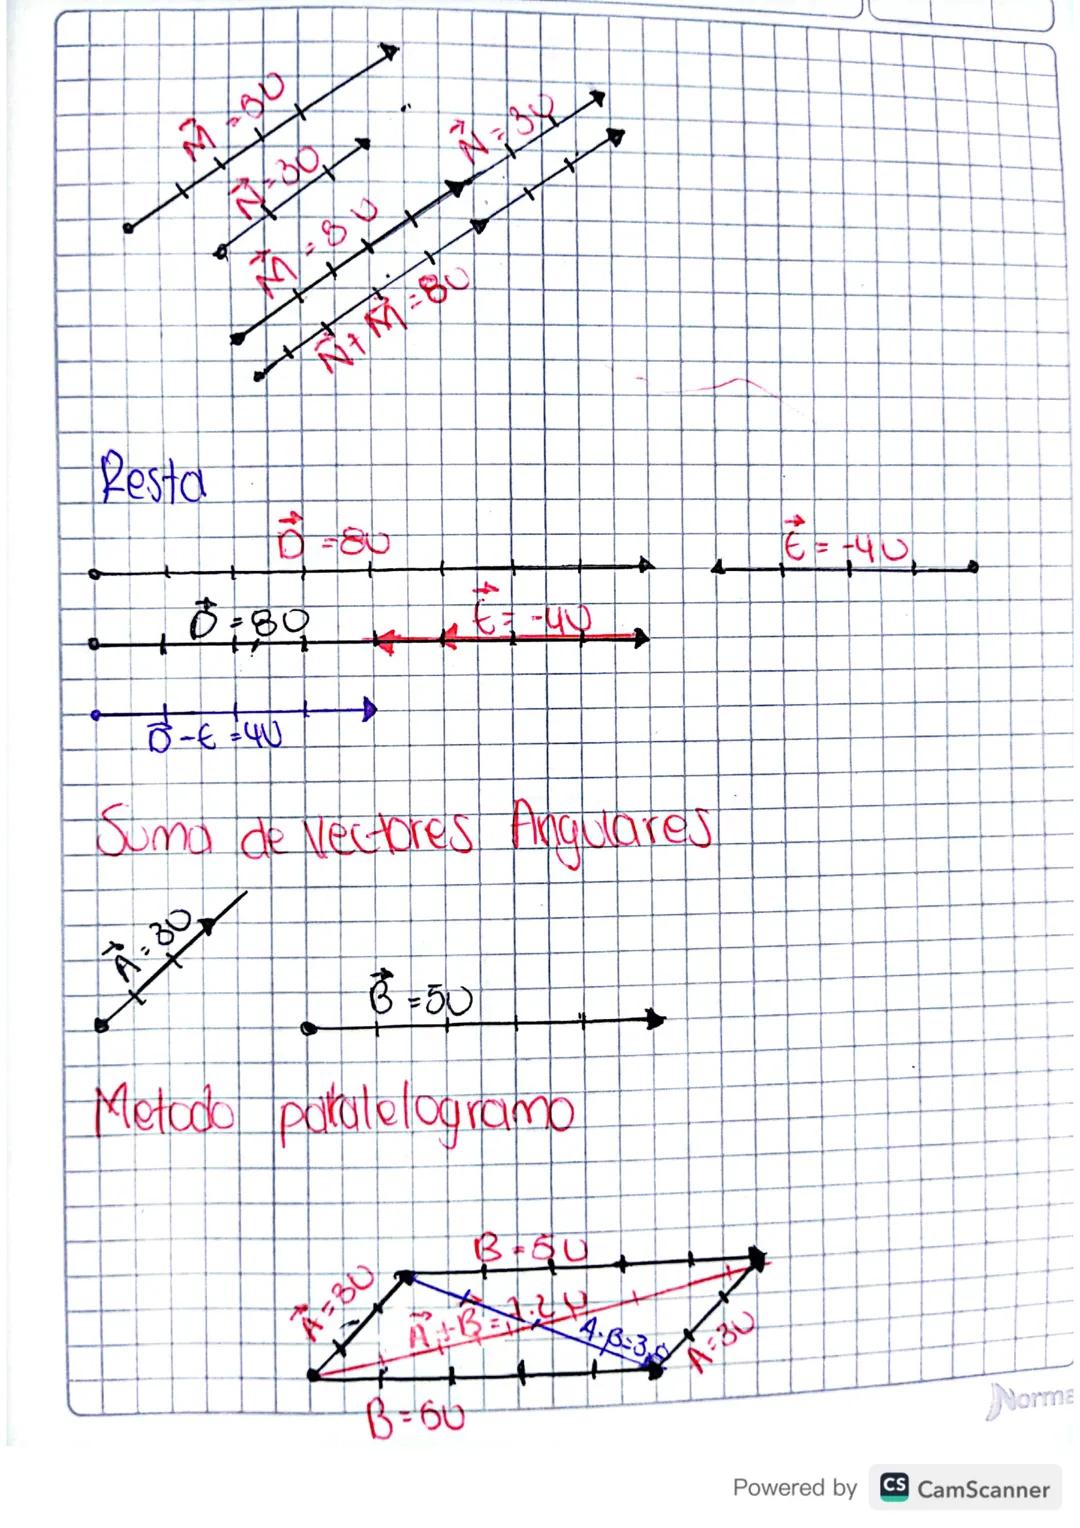 M = 8U
N = 3U
N = 3U
M = 8U
N + M = 8U
Resta
D = 8U
E = -4U
D = 8U
E = -4U
D - E = 4U
Suma de Vectores Angulares
A = 3U
B = 5U
Metodo paralelogramo
B = 5U
A = 3U
A + B = 7.2U
A - B = 3.
A = 3U
B = 5U
Norma
Powered by CS CamScanner